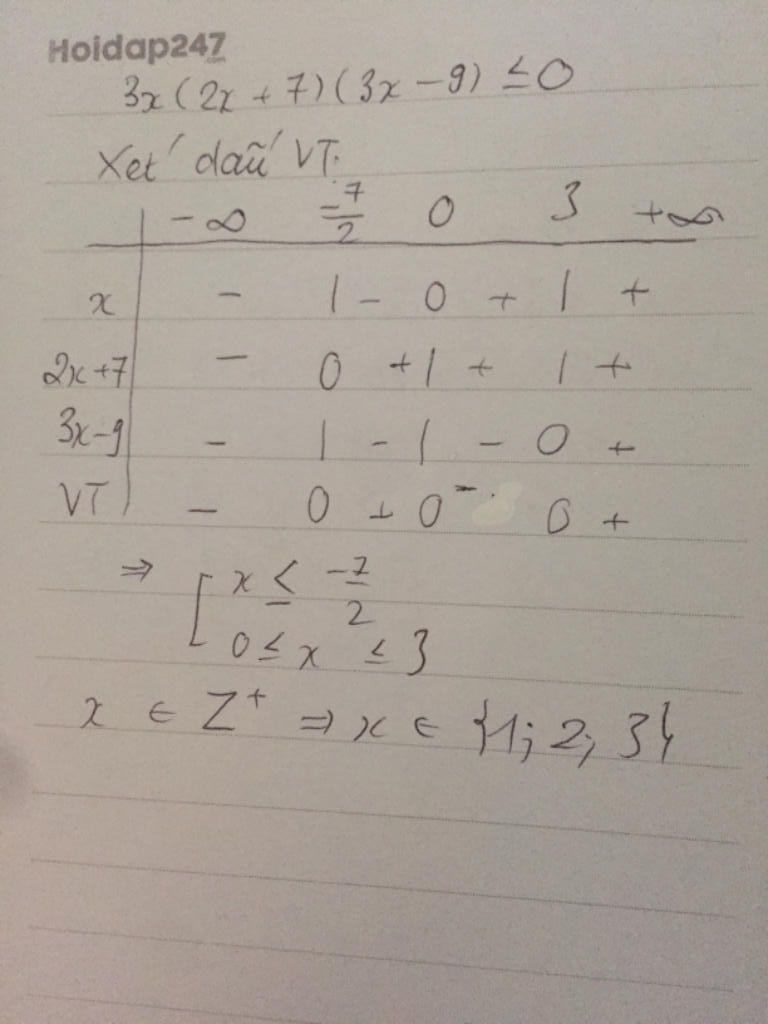 Hoidap247
.com
3x(2x+7)(3x-9) ≤0
Xet' dấu VT.
-∞ -7/2 0 3 +∞
x - | - 0 + | +
2x+7 - 0 + | + | +
3x-9 - | - | - 0 +
VT - 0 + 0 - 0 +
⇒ [ x ≤ -7/2
0 ≤ x ≤ 3
x ∈ Z⁺ ⇒ x ∈ {1; 2; 3}